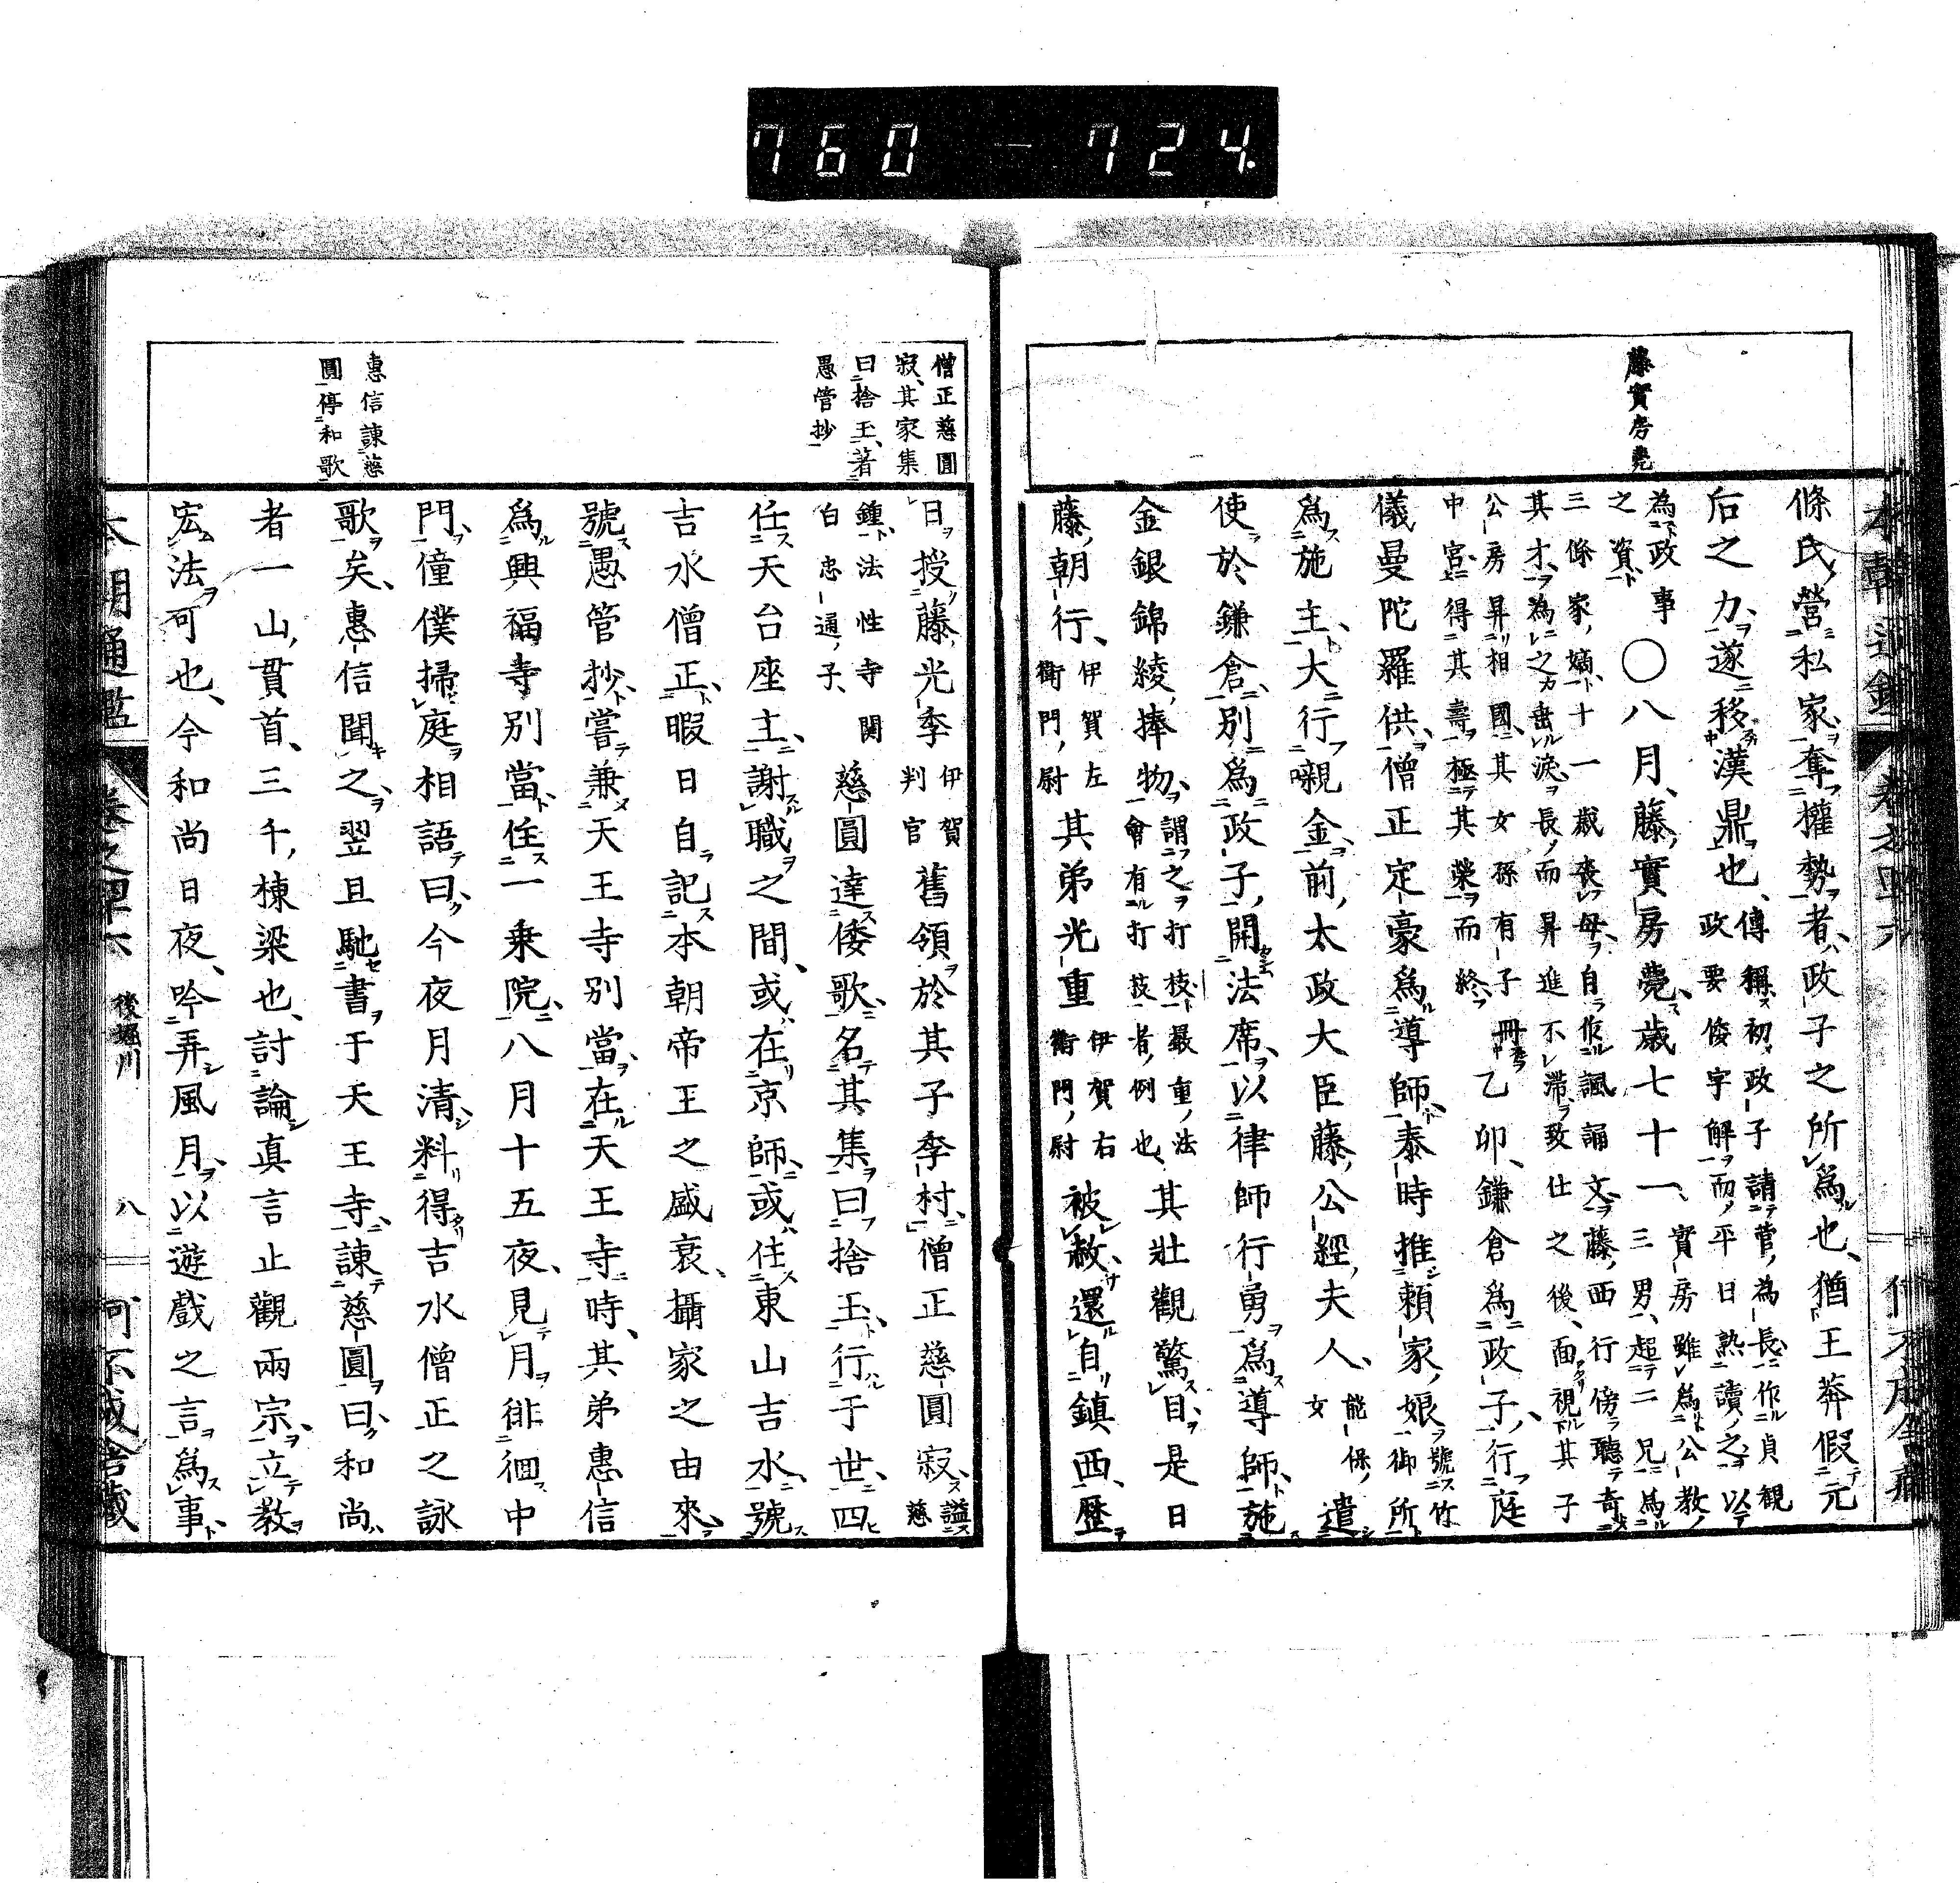 760-724
藤實房薨
條氏營私家奪權勢者政子之所爲也猶王莽假元
后之力遂移漢鼎也傳稱初政子請菅爲長作貞觀
政要俊字解而平日熟讀之以
爲政事
之資〇八月藤實房薨歲七十一實房雖爲公教
三男超二兄爲
三條家嫡十一歲喪母自作諷誦文藤西行傍聽奇
其才爲之垂淚長而昇進不滯致仕之後面視其子
公房昇相國其女孫有子册
中宮得其壽極其榮而終乙卯鎌倉爲政子行庭
儀曼陀羅供僧正定豪爲導師泰時推賴家娘號竹
御所
爲施主大行襯金前太政大臣藤公經夫人能保
女遣
使於鎌倉別爲政子開法席以律師行勇爲導師施
金銀錦綾捧物謂之打枝最重法
會有打技者例也其壯觀驚目是日
藤朝行伊賀左
衛門尉其弟光重伊賀右
衛門尉被赦還自鎮西歷
日授藤光季伊賀
判官舊領於其子季村僧正慈圓寂謚慈
鍾法性寺關
白忠通子慈圓達倭歌名其集曰捨玉行于世四
任天台座主謝職之間或在京師或住東山吉水號
吉水僧正暇日自記本朝帝王之盛衰攝家之由來
號愚管抄嘗兼天王寺別當在天王寺時其弟惠信
爲興福寺別當住一乗院八月十五夜見月徘徊中
門僮僕掃庭相語曰今夜月清料得吉水僧正之詠
歌矣惠信聞之翌旦馳書于天王寺諫慈圓曰和尚
者一山貫首三千棟梁也討論真言止觀兩宗立教
宏法可也今和尚日夜吟弄風月以遊戲之言爲事
僧正慈圓
寂其家集
曰捨玉著
愚管抄
惠信諫慈
圓停和歌
本朝通鑑
後堀川
八